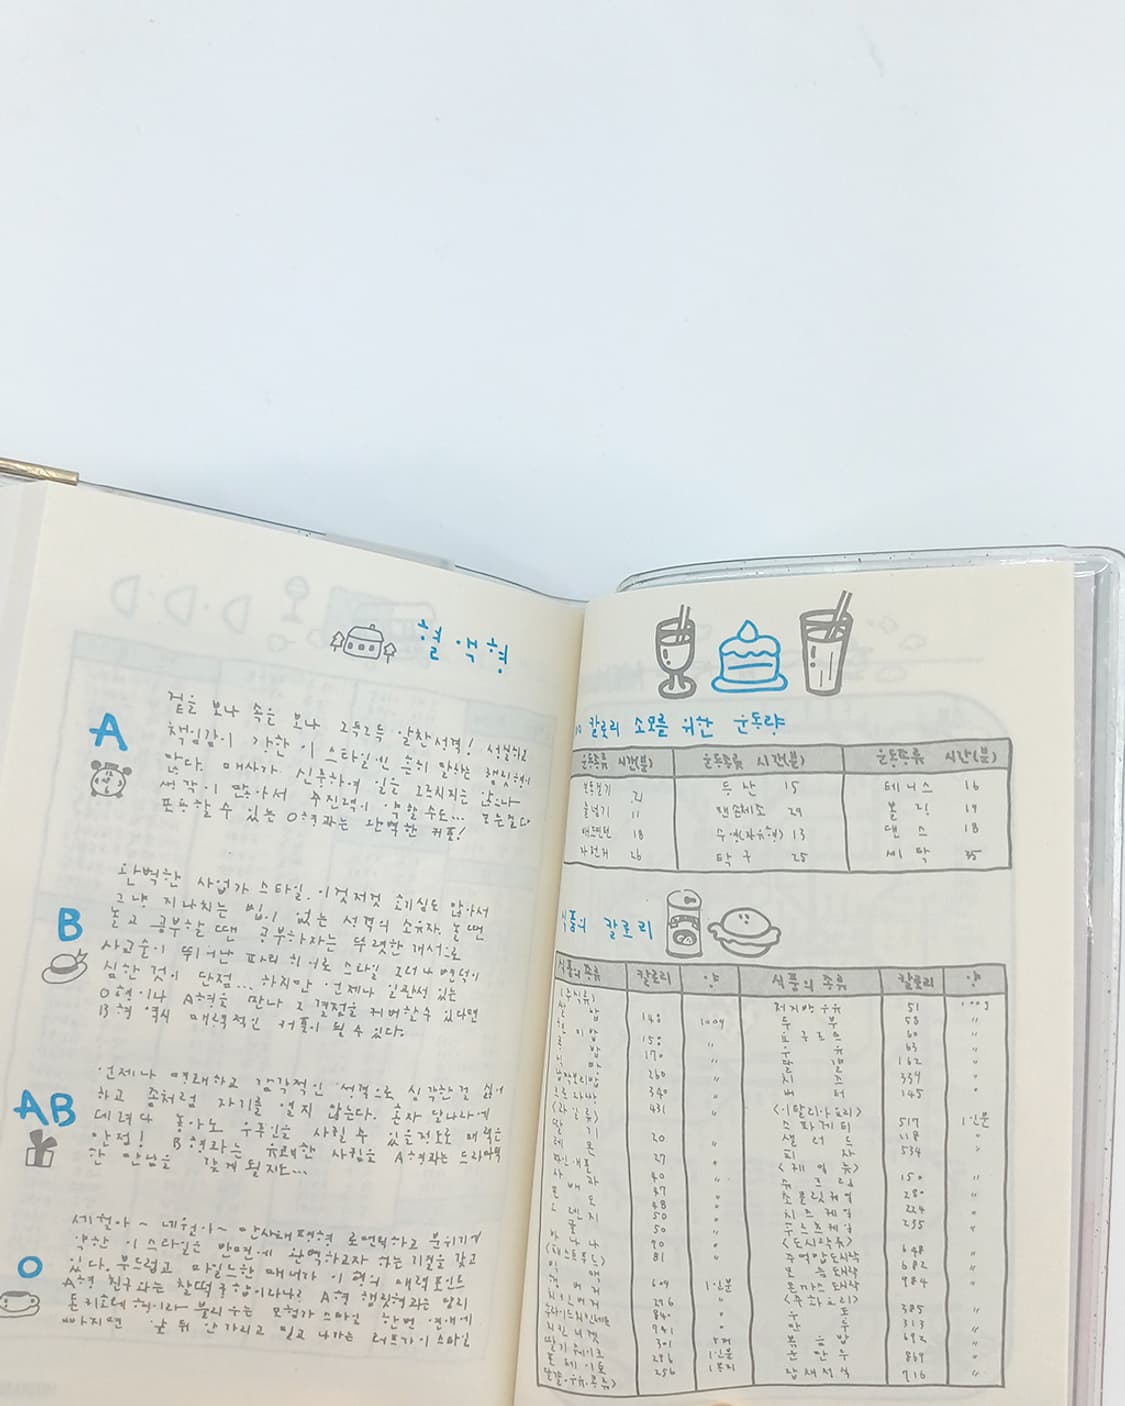 혈액형
A
겉을 보나 속을 보나 그득그득 알찬성격! 성실하고
책임감이 강한 이 스타일은 흔히 말하는 햄릿형이
많다. 매사가 신중하여 일을 그르치지는 않으나
생각이 많아서 추진력이 약할 수도... 모든걸 다
포용할 수 있는 O형과는 완벽한 커플!
B
완벽한 사업가 스타일. 이것저것 호기심도 많아서
그냥 지나치는 법이 없는 성격의 소유자. 놀 땐
놀고 공부할 땐 공부하자는 뚜렷한 개성으로
사교술이 뛰어난 파티 히어로 스타일 그러나 변덕이
심한 것이 단점... 하지만 언제나 일관성 있는
O형이나 A형을 만나 그 결점을 커버할수 있다면
B형 역시 매력적인 커플이 될 수 있다.
AB
언제나 명쾌하고 감각적인 성격으로 심각한걸 싫어
하고 좀처럼 자기를 열지 않는다. 혼자 달나라에
데려다 놓아도 우주인을 사귈 수 있을정도로 매력은
만점! B형과는 유쾌한 사귐을 A형과는 드라마틱
한 만남을 갖게 될지도...
O
세월아~ 네월아~ 만사태평형 로맨틱하고 분위기에
약한 이 스타일은 반면에 완벽하고자 하는 기질을 갖고
있다. 부드럽고 마일드한 매너가 이 형의 매력포인트
A형 친구와는 찰떡궁합이라나? A형 햄릿형과는 달리
돈키호테형이라 불리우는 모험가 스타일 한번 연애에
빠지면 앞 뒤 안가리고 밀고 나가는 러브가이 스타일
칼로리 소모를 위한 운동량
운동종류 시간(분) 운동종류 시간(분) 운동종류 시간(분)
보통걷기 21 등산 15 테니스 16
줄넘기 11 맨손체조 29 볼링 19
배드민턴 18 수영(자유형) 13 댄스 18
자전거 26 탁구 25 세탁 35
식품의 칼로리
식품의종류 칼로리 양 식품의 종류 칼로리 양
(주식류) 저지방우유 51 100g
쌀밥 148 100g 두부 58 〃
현미밥 150 〃 요구르트 60 〃
170 〃 우유 63 〃
260 달걀 162 〃
340 치즈 339 〃
431 버터 745 〃
<과일류> <이탈리아요리>
딸기 20 〃 스파게티 517 1인분
레몬 27 〃 샐러드 118 〃
40 〃 피자 534
사과 47 〃 <케익류>
포도 48 〃 슈크림 150 〃
오렌지 50 〃 초콜릿케익 280 〃
귤 50 〃 치즈케익 224 〃
바나나 90 〃 235 〃
(패스트푸드) 81 <도시락류>
648 〃
햄버거 609 1인분 682 〃
치킨버거 296 돈까스도시락 984 〃
840 <중화요리>
치킨너겟 941 우동 385 〃
딸기쉐이크 301 만두 313 〃
포테이토 286 1인분 볶음밥 692 〃
256 1봉지 군만두 869 〃
잡채정식 716 〃